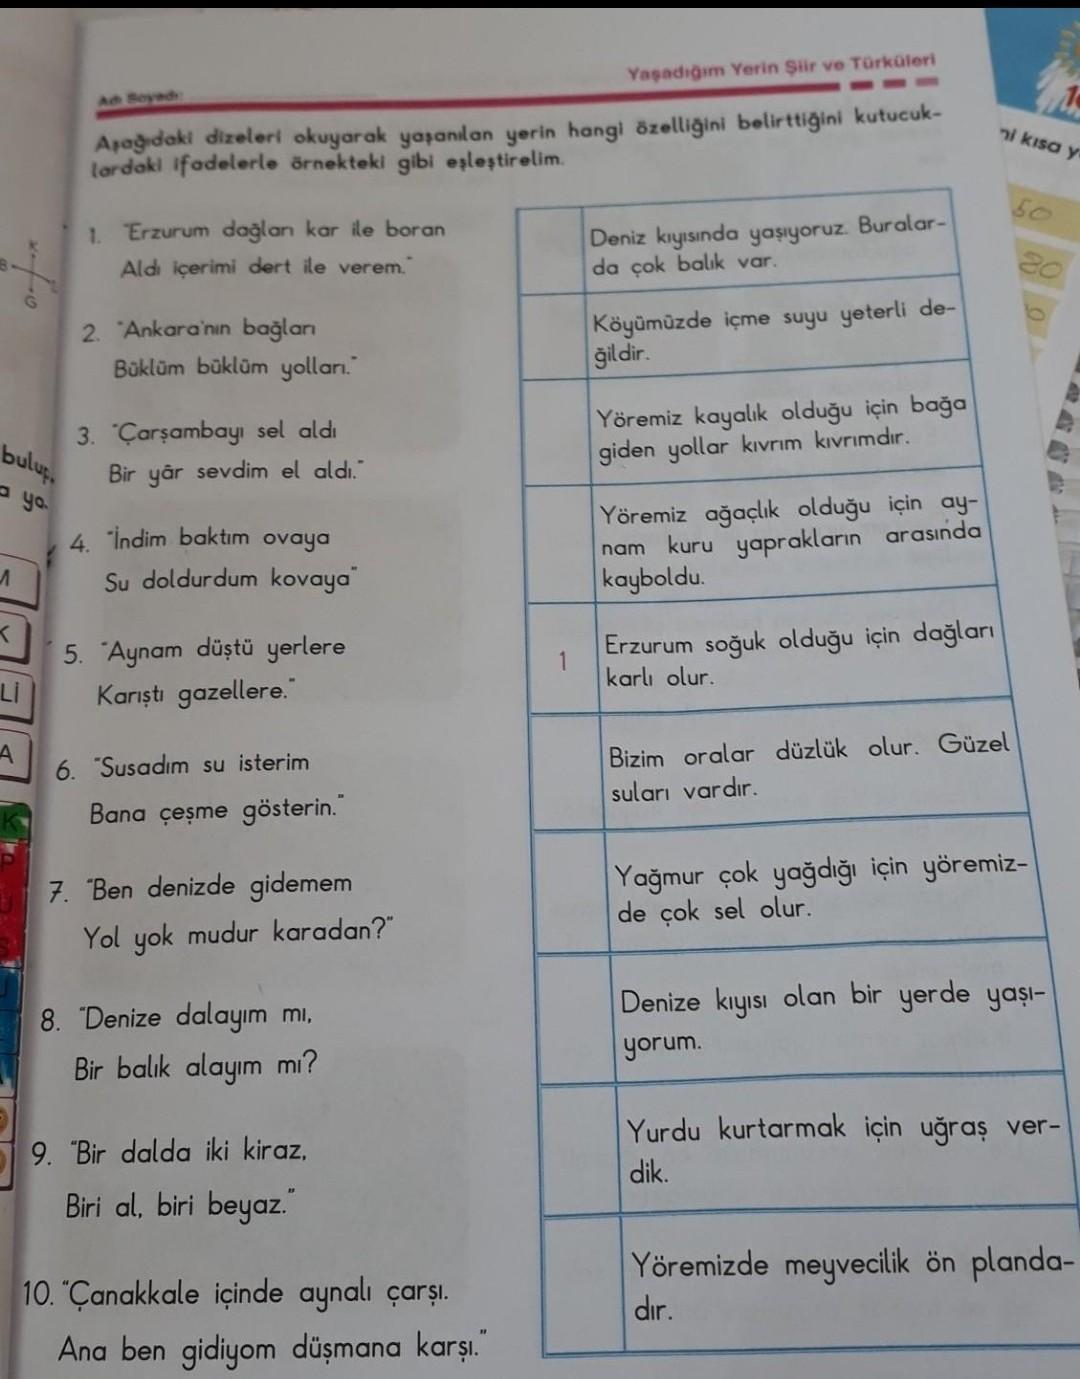 Yaşadığım Yerin Şiir ve Türküleri
Adı Soyadı:
Aşağıdaki dizeleri okuyarak yaşanılan yerin hangi özelliğini belirttiğini kutucuk-
lardaki ifadelerle örnekteki gibi eşleştirelim.
1. "Erzurum dağları kar ile boran
Aldı içerimi dert ile verem."
2. "Ankara'nın bağları
Büklüm büklüm yolları."
3. "Çarşambayı sel aldı
Bir yâr sevdim el aldı."
4. "İndim baktım ovaya
Su doldurdum kovaya"
5. "Aynam düştü yerlere
Karıştı gazellere."
6. "Susadım su isterim
Bana çeşme gösterin."
7. "Ben denizde gidemem
Yol yok mudur karadan?"
8. "Denize dalayım mı,
Bir balık alayım mı?
9. "Bir dalda iki kiraz,
Biri al, biri beyaz."
10. "Çanakkale içinde aynalı çarşı.
Ana ben gidiyom düşmana karşı."
Deniz kıyısında yaşıyoruz. Buralar-
da çok balık var.
Köyümüzde içme suyu yeterli de-
ğildir.
Yöremiz kayalık olduğu için bağa
giden yollar kıvrım kıvrımdır.
Yöremiz ağaçlık olduğu için ay-
nam kuru yaprakların arasında
kayboldu.
1 Erzurum soğuk olduğu için dağları
karlı olur.
Bizim oralar düzlük olur. Güzel
suları vardır.
Yağmur çok yağdığı için yöremiz-
de çok sel olur.
Denize kıyısı olan bir yerde yaşı-
yorum.
Yurdu kurtarmak için uğraş ver-
dik.
Yöremizde meyvecilik ön planda-
dır.
K
B
G
bulup,
a ya.
M
K
Lİ
A
K
P
U
S
ni kısa y
50
80